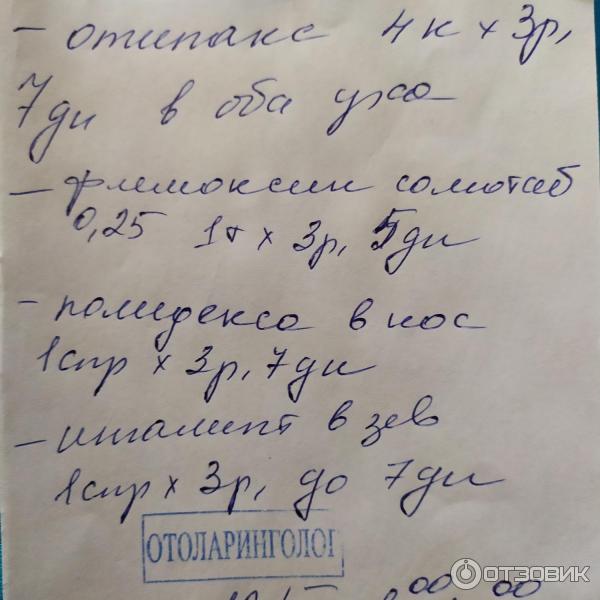 - отипакс 4к х 3р,
7 дн в оба уха
- флемоксин солютаб
0,25 1т х 3р, 5дн
- полидекса в нос
1спр х 3р, 7дн
- ингалипт в зев
1спр х 3р, до 7дн
ОТОЛАРИНГОЛОГ
ОТЗОВИК